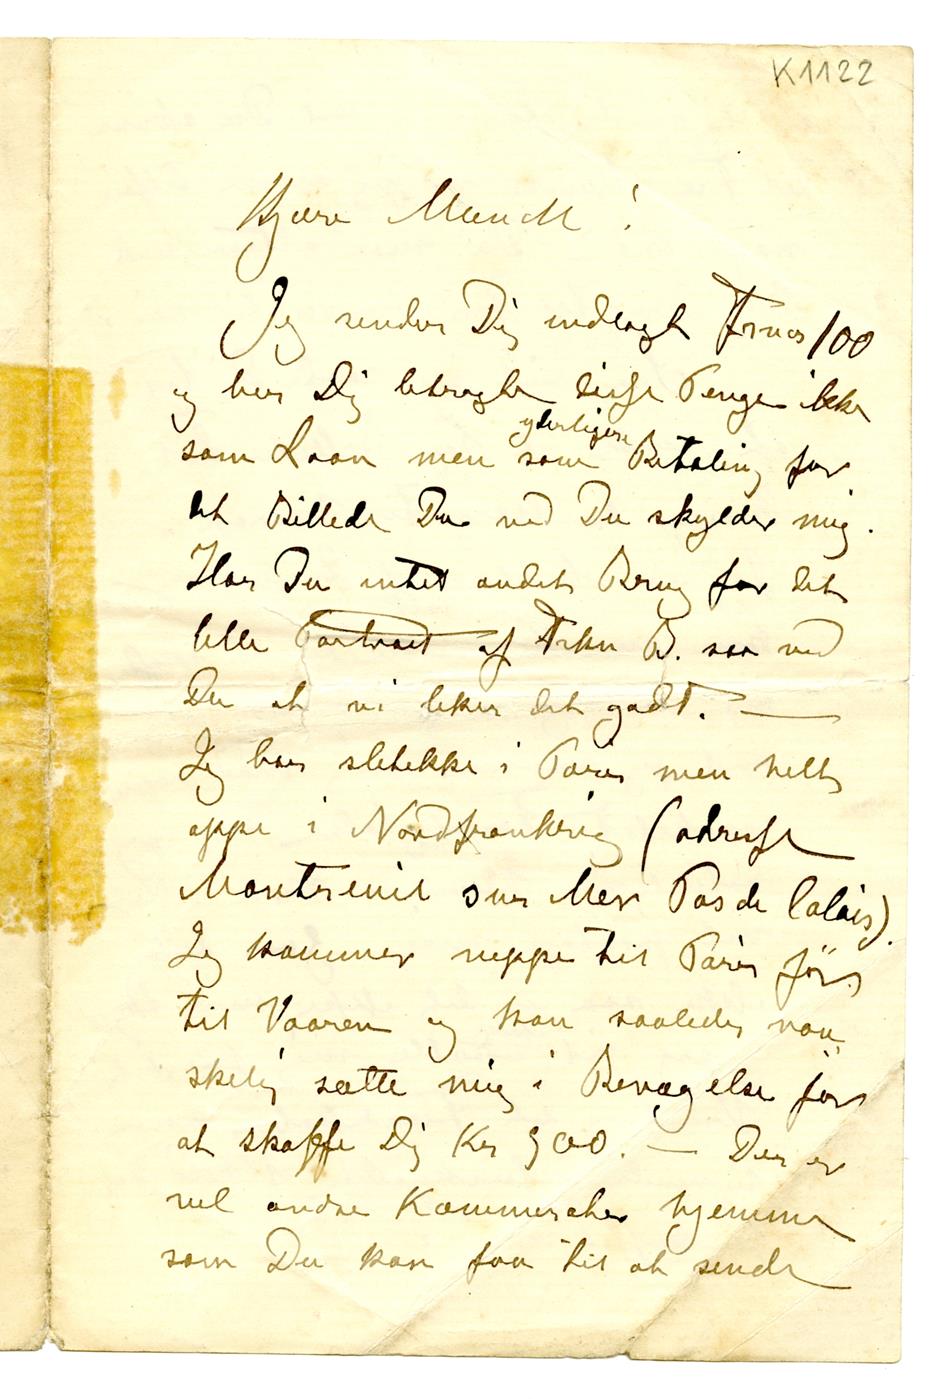 K1122
Kjære Munch!
Jeg sender Dig indlagt Frncs 100
og ber Dig betragte disse Penge ikke
som Laan men som yderligere Betaling for
det Billede Du ved Du skylder mig.
Har Du intet andet Brug for det
lille Portræt af Frkn B. saa ved
Du at vi liker det godt. —
Jeg bor slet ikke i Paris men helt
oppe i Nordfrankrig (adresse
Montreuil sur Mer Pas de Calais).
Jeg kommer neppe til Paris før
til Vaaren og kan saaledes van
skelig sætte mig i Bevægelse for
at skaffe Dig Kr 900. — Der er
vel andre Kammerater hjemme
som Du kan faa til at sende